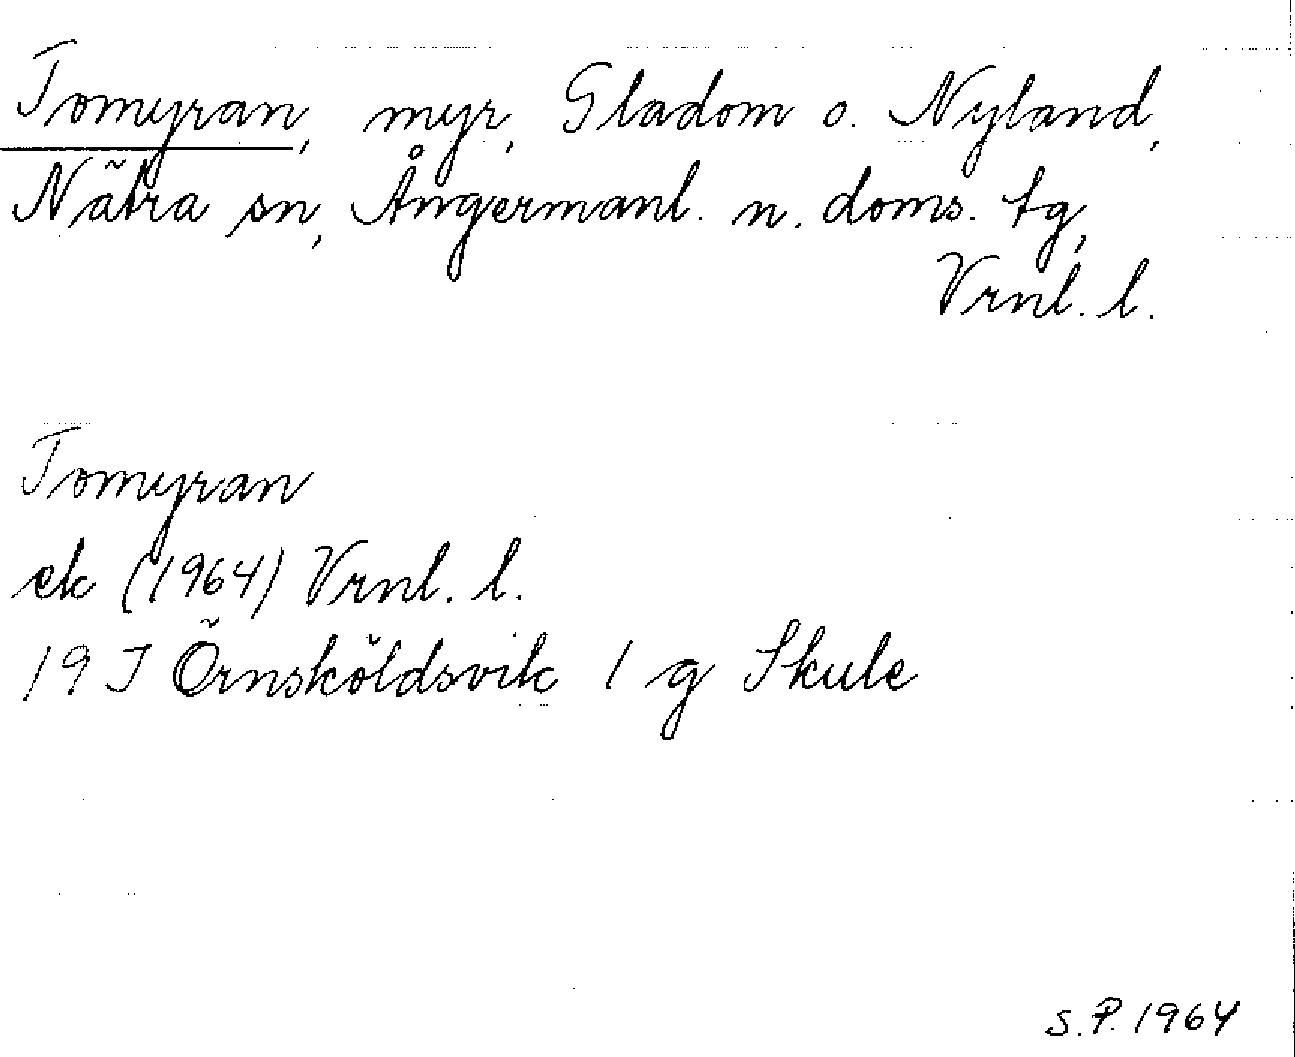 Tomyran, myr, Gladom o. Nyland,
Nätra sn, Ångermanl. n. doms. tg,
Vrnl. l.
Tomyran
ek (1964) Vrnl. l.
19 I Örnsköldsvik 1 g Skule
S.P. 1964